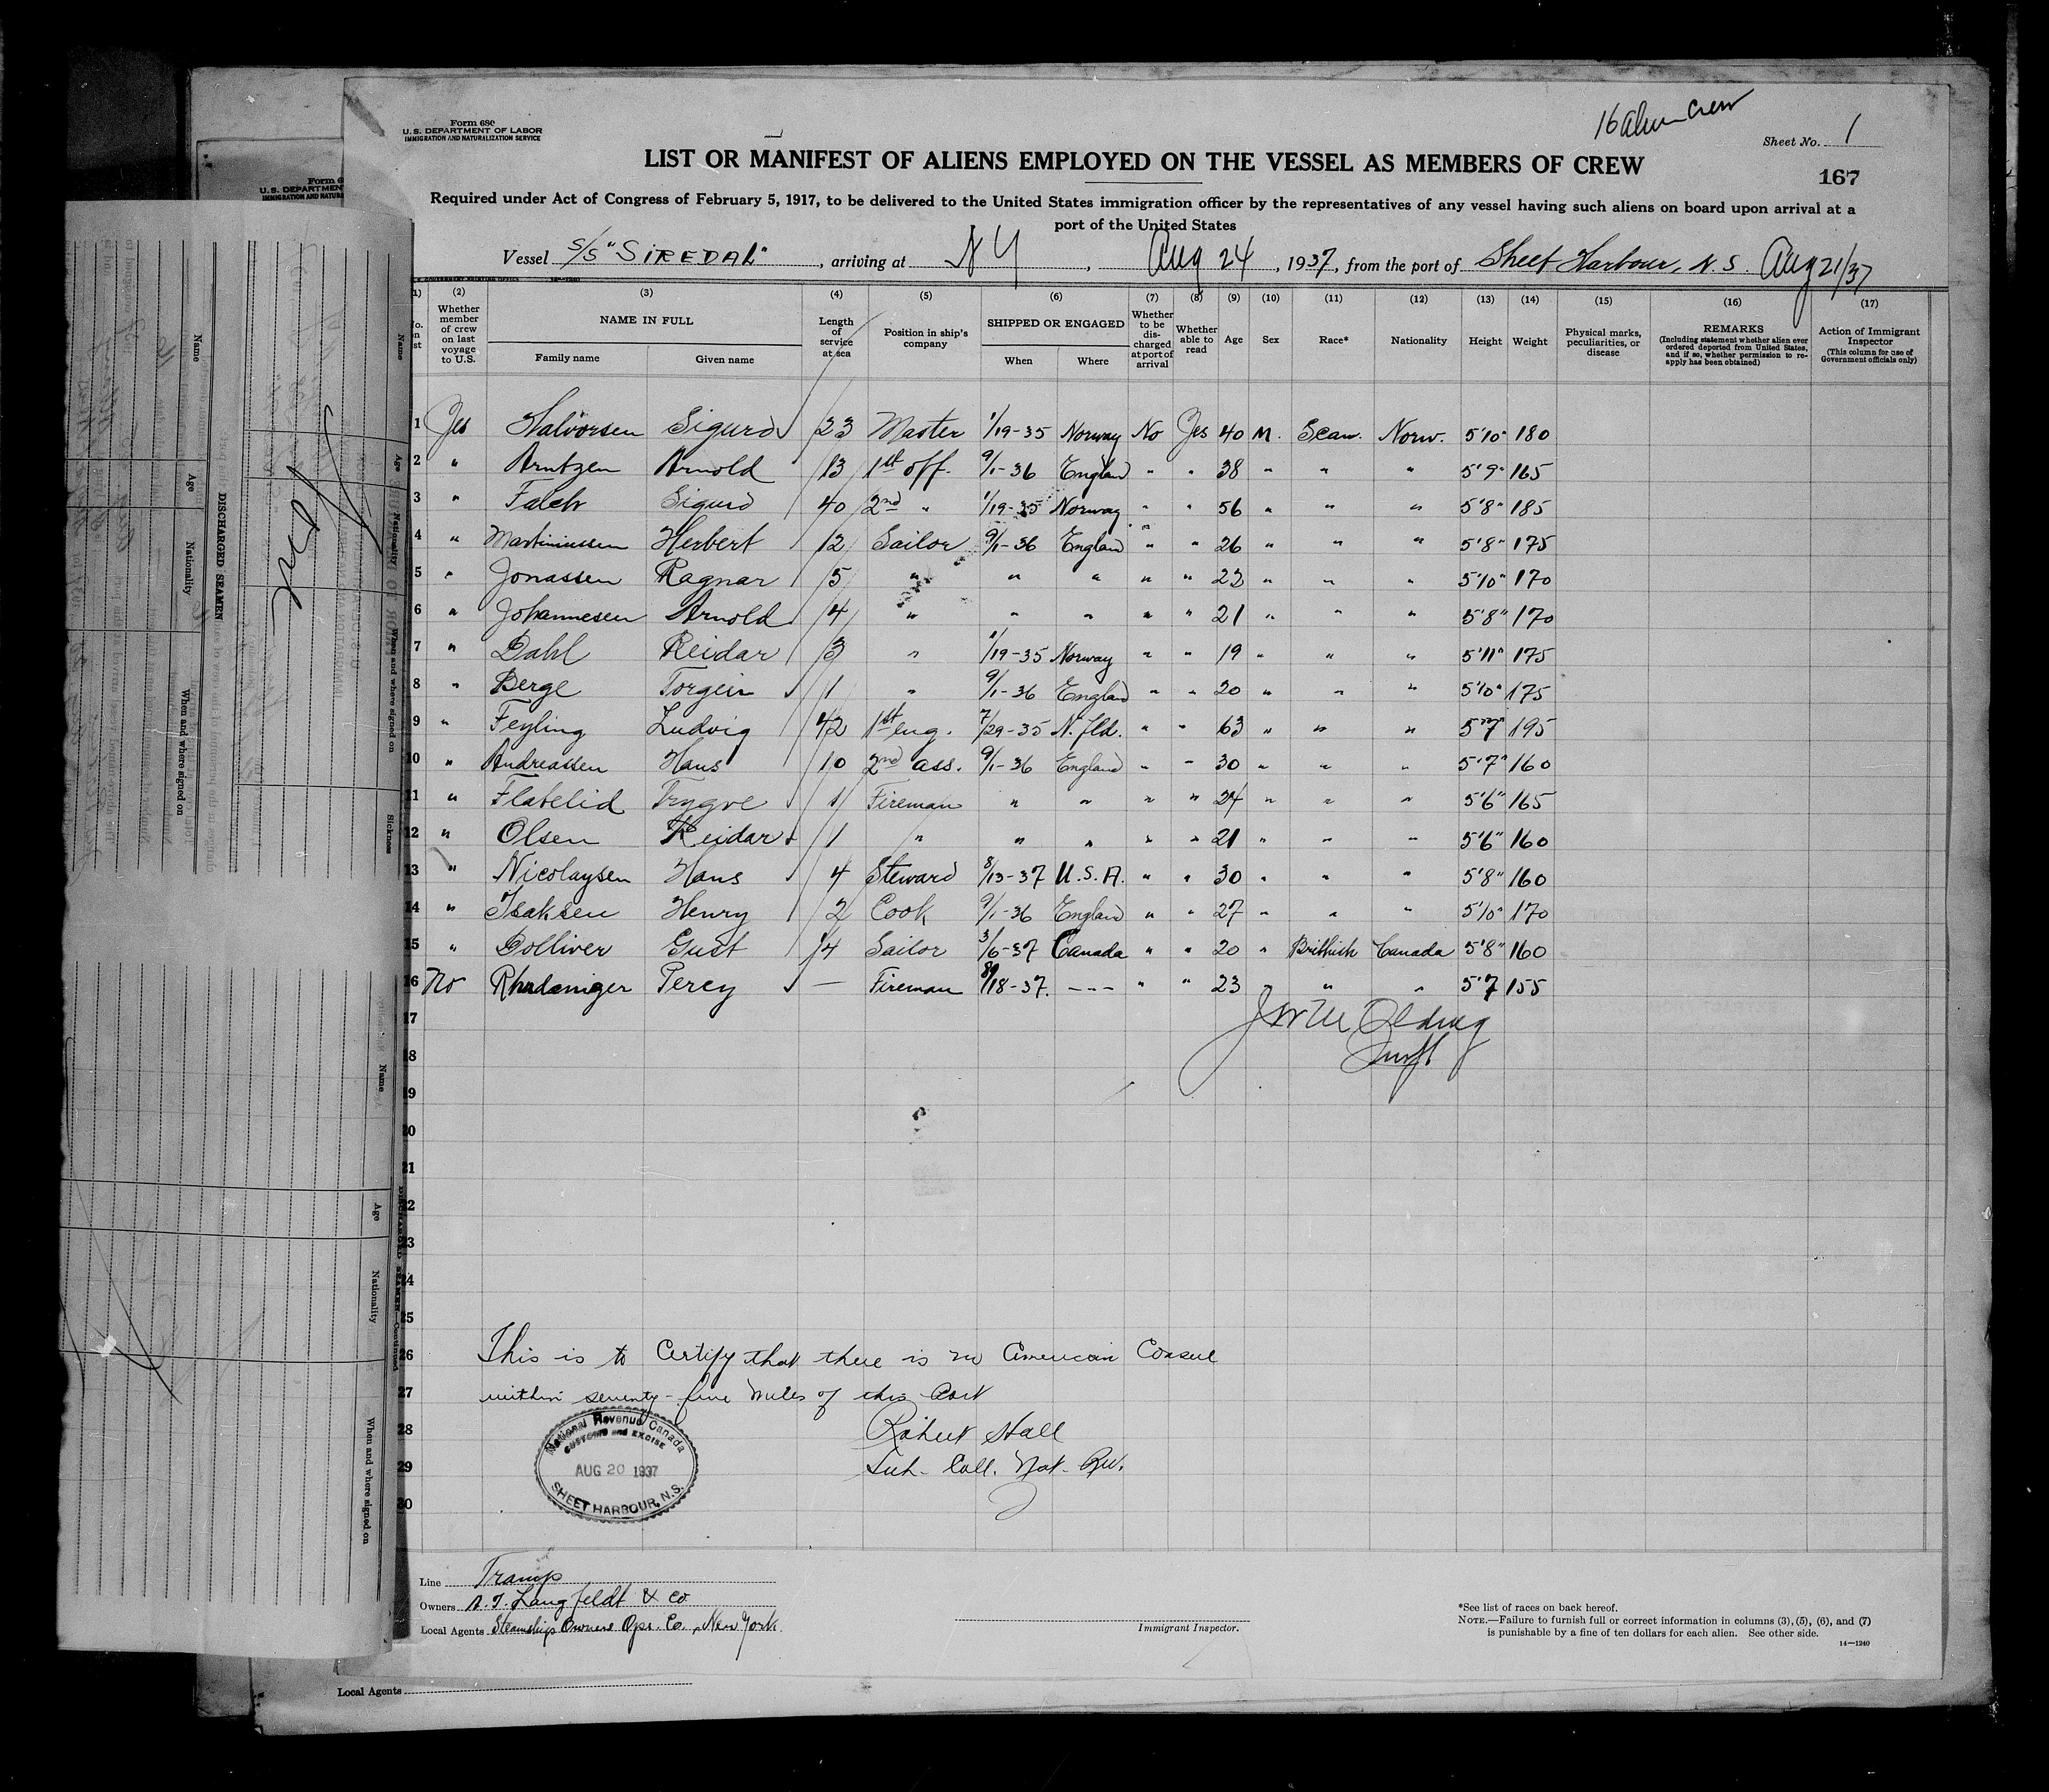 16 alien crew
Form 680
U. S. DEPARTMENT OF LABOR
IMMIGRATION AND NATURALIZATION SERVICE
Sheet No. 1
LIST OR MANIFEST OF ALIENS EMPLOYED ON THE VESSEL AS MEMBERS OF CREW
167
Required under Act of Congress of February 5, 1917, to be delivered to the United States immigration officer by the representatives of any vessel having such aliens on board upon arrival at a
port of the United States
Vessel S/S "SIREDAL", arriving at N Y, Aug 24, 1937, from the port of Sheet Harbour, N. S. Aug 21/37
(2) (3) (4) (5) (6) (7) (8) (9) (10) (11) (12) (13) (14) (15) (16) (17)
Whether member of crew on last voyage to U.S.
NAME IN FULL
Family name Given name
Length of service at sea
Position in ship's company
SHIPPED OR ENGAGED
When Where
Whether to be discharged at port of arrival
Whether able to read
Age Sex Race* Nationality Height Weight
Physical marks, peculiarities, or disease
REMARKS
(Including statement whether alien ever ordered deported from United States, and if so, whether permission to reapply has been obtained)
Action of Immigrant Inspector
(This column for use of Government officials only)
1 Yes Halvorsen Sigurd 23 Master 1/19-35 Norway No Yes 40 M. Scan. Norw. 5'10" 180
2 " Arntzen Arnold 13 1st off. 9/1-36 England " " 38 " " " 5'9" 165
3 " Falch Sigurd 40 2nd " 1/19-35 Norway " " 56 " " " 5'8" 185
4 " Martiniussen Herbert 12 Sailor 9/1-36 England " " 26 " " " 5'8" 175
5 " Jonassen Ragnar 5 " " " " " 22 " " " 5'10" 170
6 " Johannesen Arnold 4 " " " " " 21 " " " 5'8" 170
7 " Dahl Reidar 3 " 1/19-35 Norway " " 19 " " " 5'11" 175
8 " Berge Torgeir 1 " 9/1-36 England " " 20 " " " 5'10" 175
9 " Feyling Ludvig 42 1st eng. 7/29-35 N. fld. " " 63 " " " 5'7" 195
10 " Andreassen Hans 10 2nd ass. 9/1-36 England " " 30 " " " 5'7" 160
11 " Flatelid Trygve 1 Fireman " " " " 24 " " " 5'6" 165
12 " Olsen Reidar 1 " " " " " 21 " " " 5'6" 160
13 " Nicolaysen Hans 4 Steward 8/13-37 U.S.A. " " 30 " " " 5'8" 160
14 " Isaksen Henry 2 Cook 9/1-36 England " " 27 " " " 5'10" 170
15 " Dolliver Gust 4 Sailor 3/6-37 Canada " " 20 " Brithish Canada 5'8" 160
16 No Percy — Fireman 8/18-37. --- " " 23 " " 5'7 155
17
18
19
20
21
22
23
24
25
26 This is to Certify that there is no American Consul
27 within seventy-five miles of this Port
28 Robert Hall
29 Sub- Coll. Nat- Rev.
30
National Revenue Canada
CUSTOMS and EXCISE
AUG 20 1937
SHEET HARBOUR, N.S.
Line Tramp
Owners A. I. Langfeldt & Co
Local Agents Steamships Owners Opr. Co., New York.
Immigrant Inspector.
*See list of races on back hereof.
NOTE.—Failure to furnish full or correct information in columns (3), (5), (6), and (7)
is punishable by a fine of ten dollars for each alien. See other side.
14—1240
Local Agents
DISCHARGED SEAMEN
Name
Age
Nationality
When and where signed on
Sickness